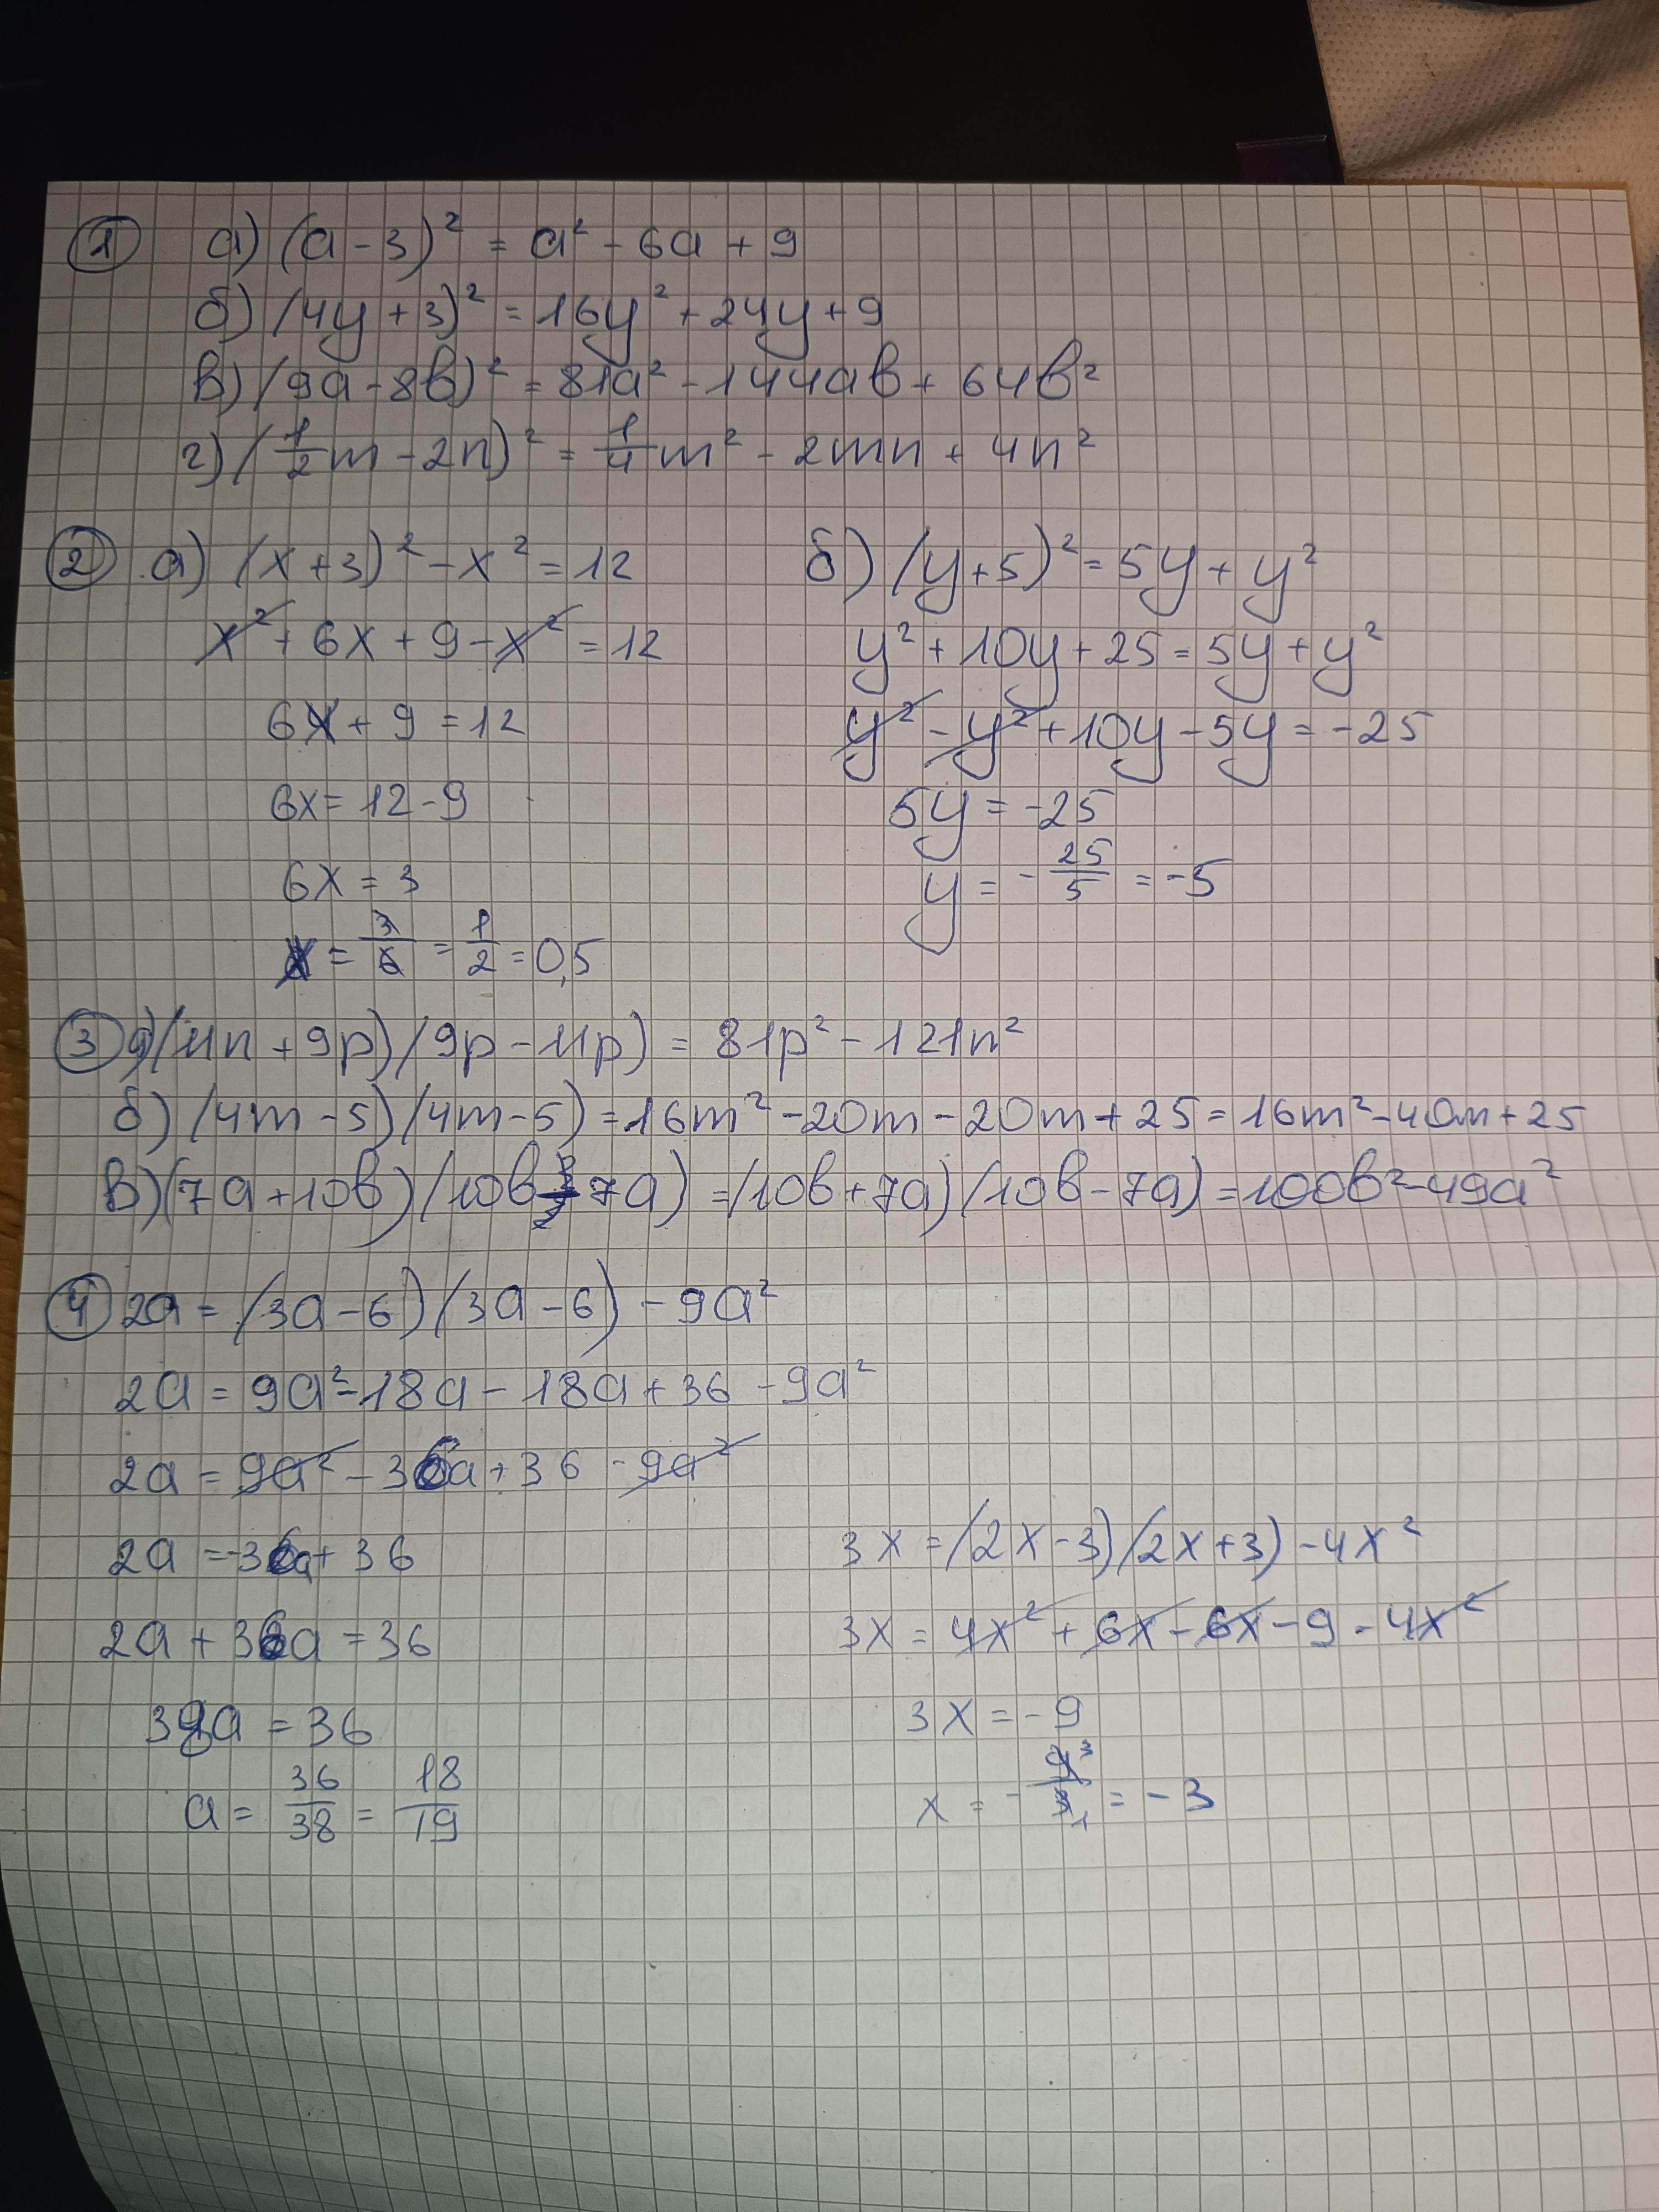 1 а) (a - 3)² = a² - 6a + 9
б) (4y + 3)² = 16y² + 24y + 9
в) (9a - 8b)² = 81a² - 144ab + 64b²
г) (1/2 m - 2n)² = 1/4 m² - 2mn + 4n²
2 а) (x + 3)² - x² = 12
x² + 6x + 9 - x² = 12
6x + 9 = 12
6x = 12 - 9
6x = 3
x = 3/6 = 1/2 = 0,5
б) (y + 5)² = 5y + y²
y² + 10y + 25 = 5y + y²
y² - y² + 10y - 5y = -25
5y = -25
y = - 25/5 = -5
3 а) (11n + 9p) (9p - 11p) = 81p² - 121n²
б) (4m - 5) (4m - 5) = 16m² - 20m - 20m + 25 = 16m² - 40m + 25
в) (7a + 10b) (10b - 7a) = (10b + 7a) (10b - 7a) = 100b² - 49a²
4 2a = (3a - 6) (3a - 6) - 9a²
2a = 9a² - 18a - 18a + 36 - 9a²
2a = 9a² - 36a + 36 - 9a²
2a = -36a + 36
2a + 36a = 36
38a = 36
a = 36/38 = 18/19
3x = (2x - 3) (2x + 3) - 4x²
3x = 4x² + 6x - 6x - 9 - 4x²
3x = - 9
x = - 9/3 = - 3